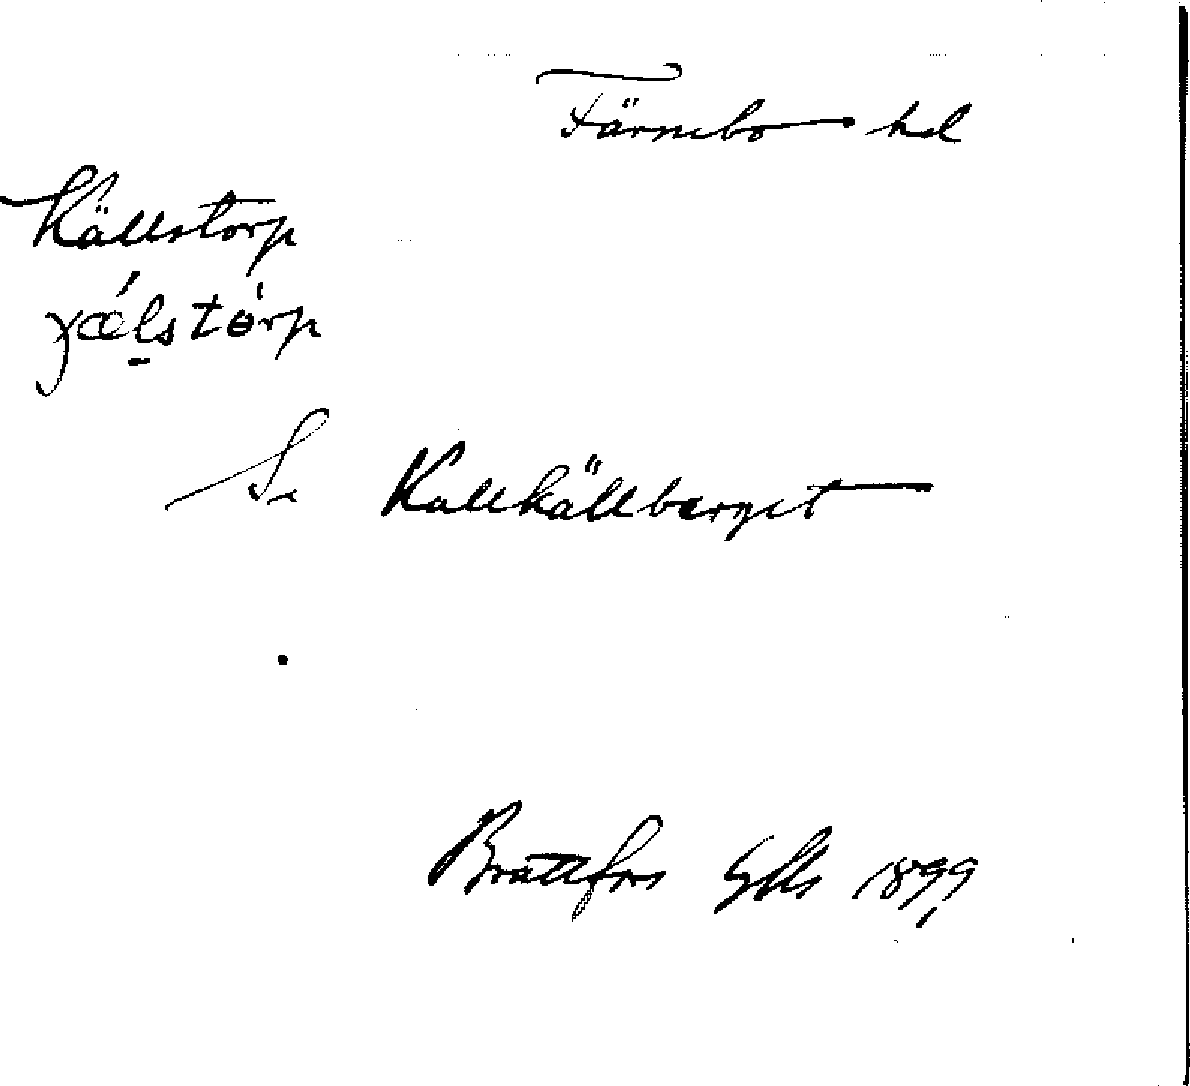 Färnebo hd
Källstorp
Se Kallkällberget
Brattfors Gbb 1899